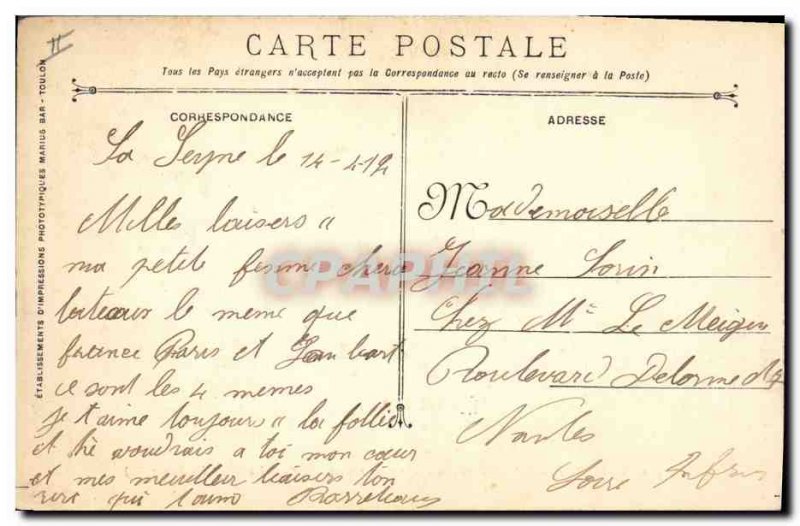 CARTE POSTALE
Tous les Pays étrangers n'acceptent pas la Correspondance au recto (Se renseigner à la Poste)
CORRESPONDANCE
La Seyne le 14-4-12
Milles baisers
ma petit femme chere
bateaux le meme que
france Paris et Jean bart
ce sont les 4 memes
je t'aime toujours a la follis
et te voudrais a toi mon cœur
et mes meuilleur baisers ton
qui taime
ADRESSE
Mademoiselle
Jeanne Lorin
Chez Mr Le Meigen
Boulevard Delorme
Nantes
Loire Infre
ÉTABLISSEMENTS D'IMPRESSIONS PHOTOTYPIQUES MARIUS BAR - TOULON
CPAPHIL